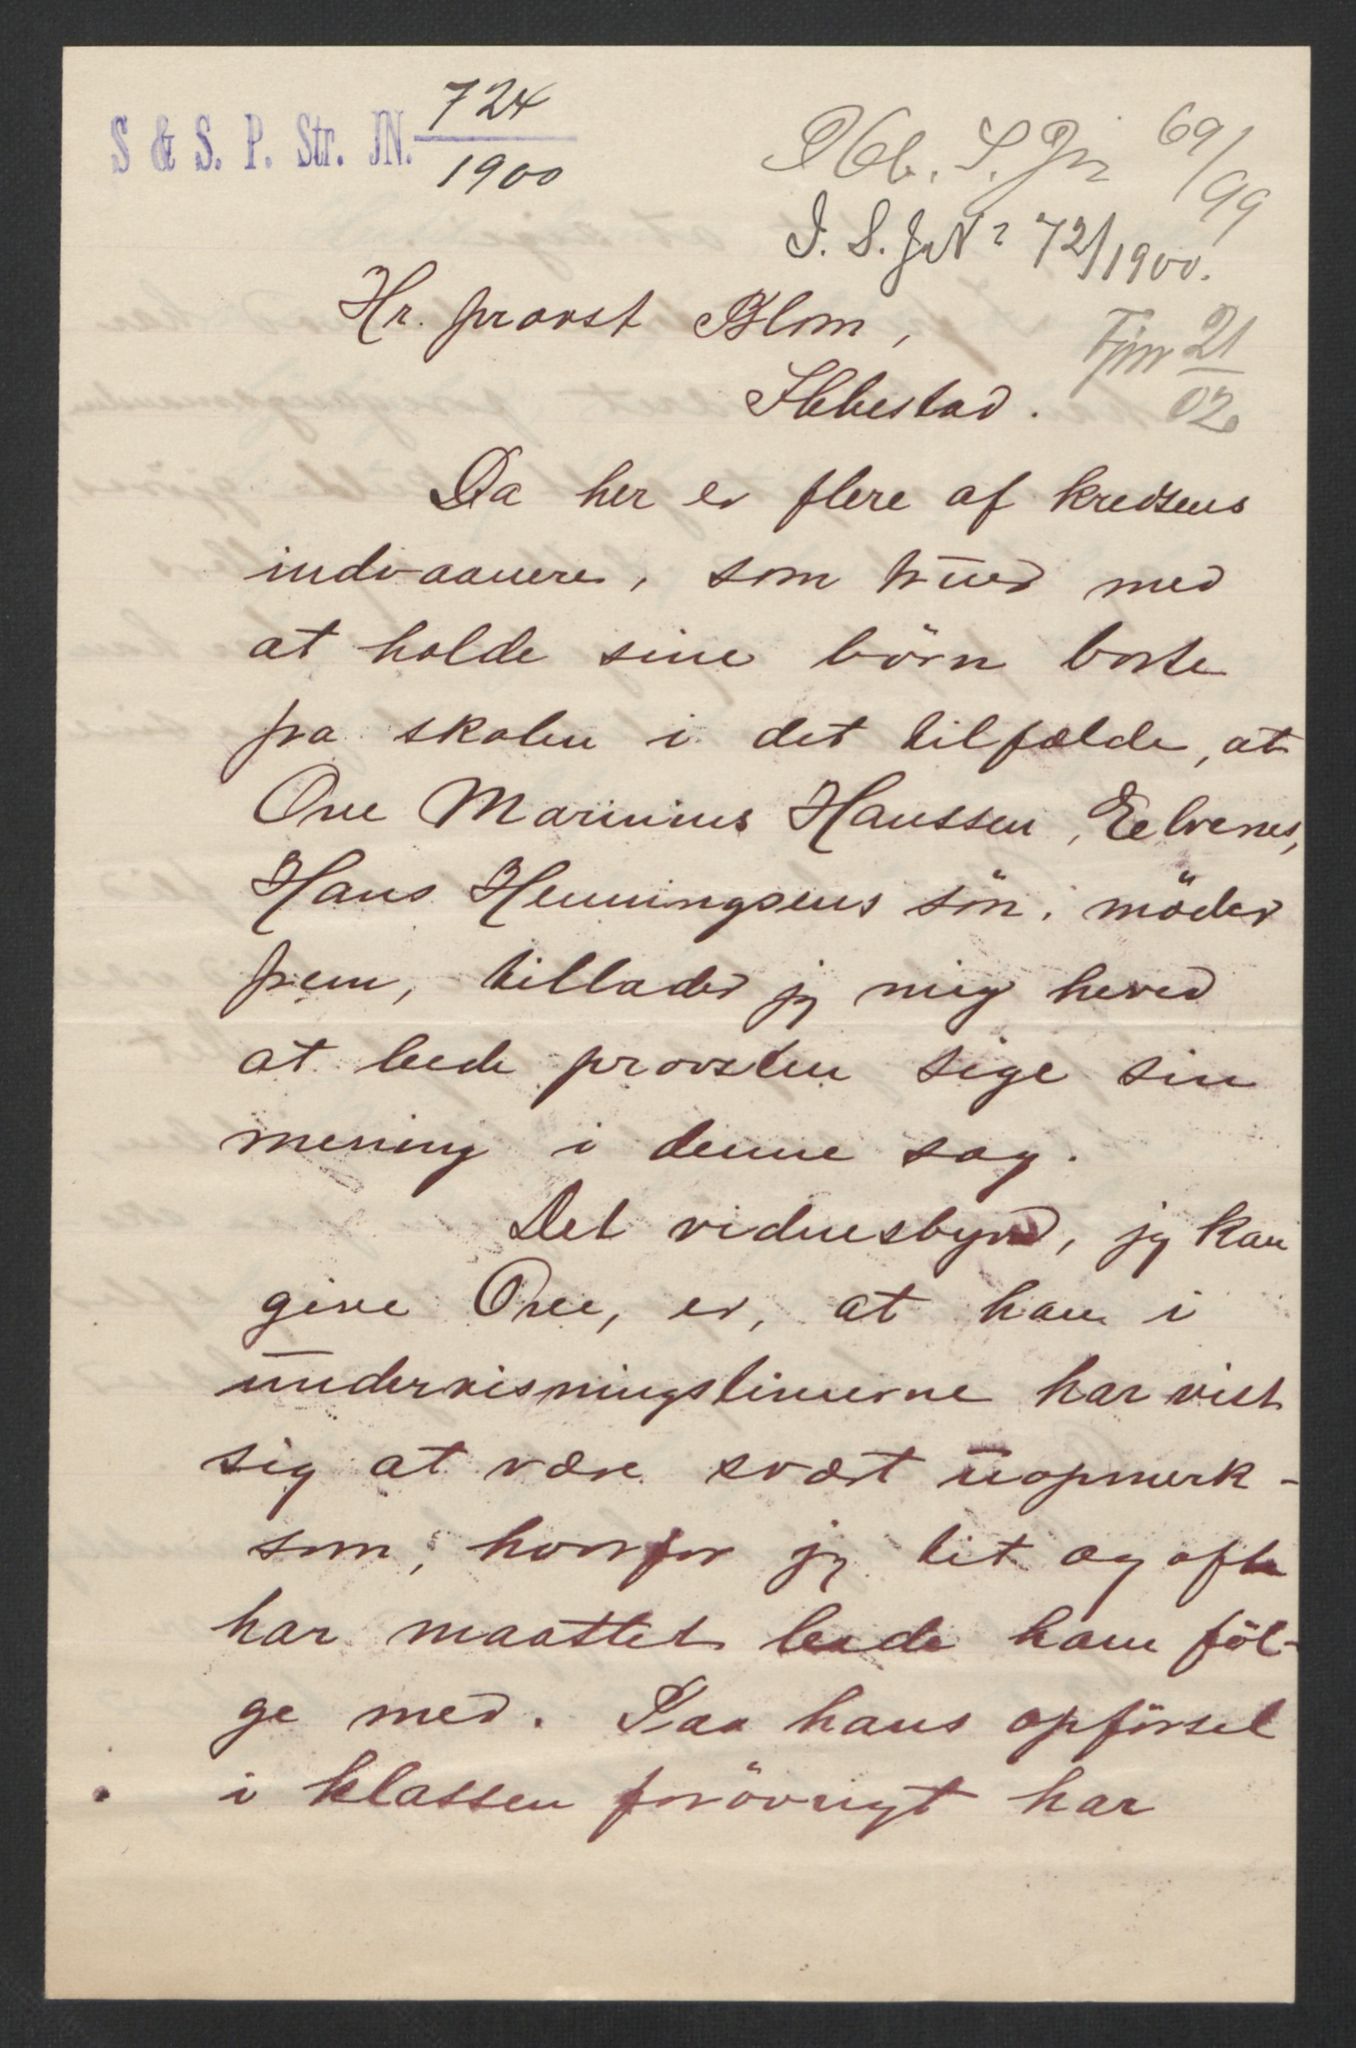 S & S. P. Str. JN. 724
1900
Ibb. S. Jn 69/99
I. S. JN 72/1900.
Hr. provst Blom,
Fjnr 21
02
Ibbestad.
Da her er flere af kredsens
indvaanere, som truer med
at holde sine börn borte
fra skolen i det tilfælde, at
Ove Marinius Hanssen, Elvenes,
Hans Henningsens sön, möder
frem, tillader jeg mig herved
at bede provsten sige sin
mening i denne sag.
Det vidnesbyrd, jeg kan
give Ove, er, at han i
undervisningstimerne har vist
sig at være svært uopmerk-
som, hvorfor jeg tit og ofte
har maattet bede ham föl-
ge med. Paa hans opförsel
i klassen forövrigt har